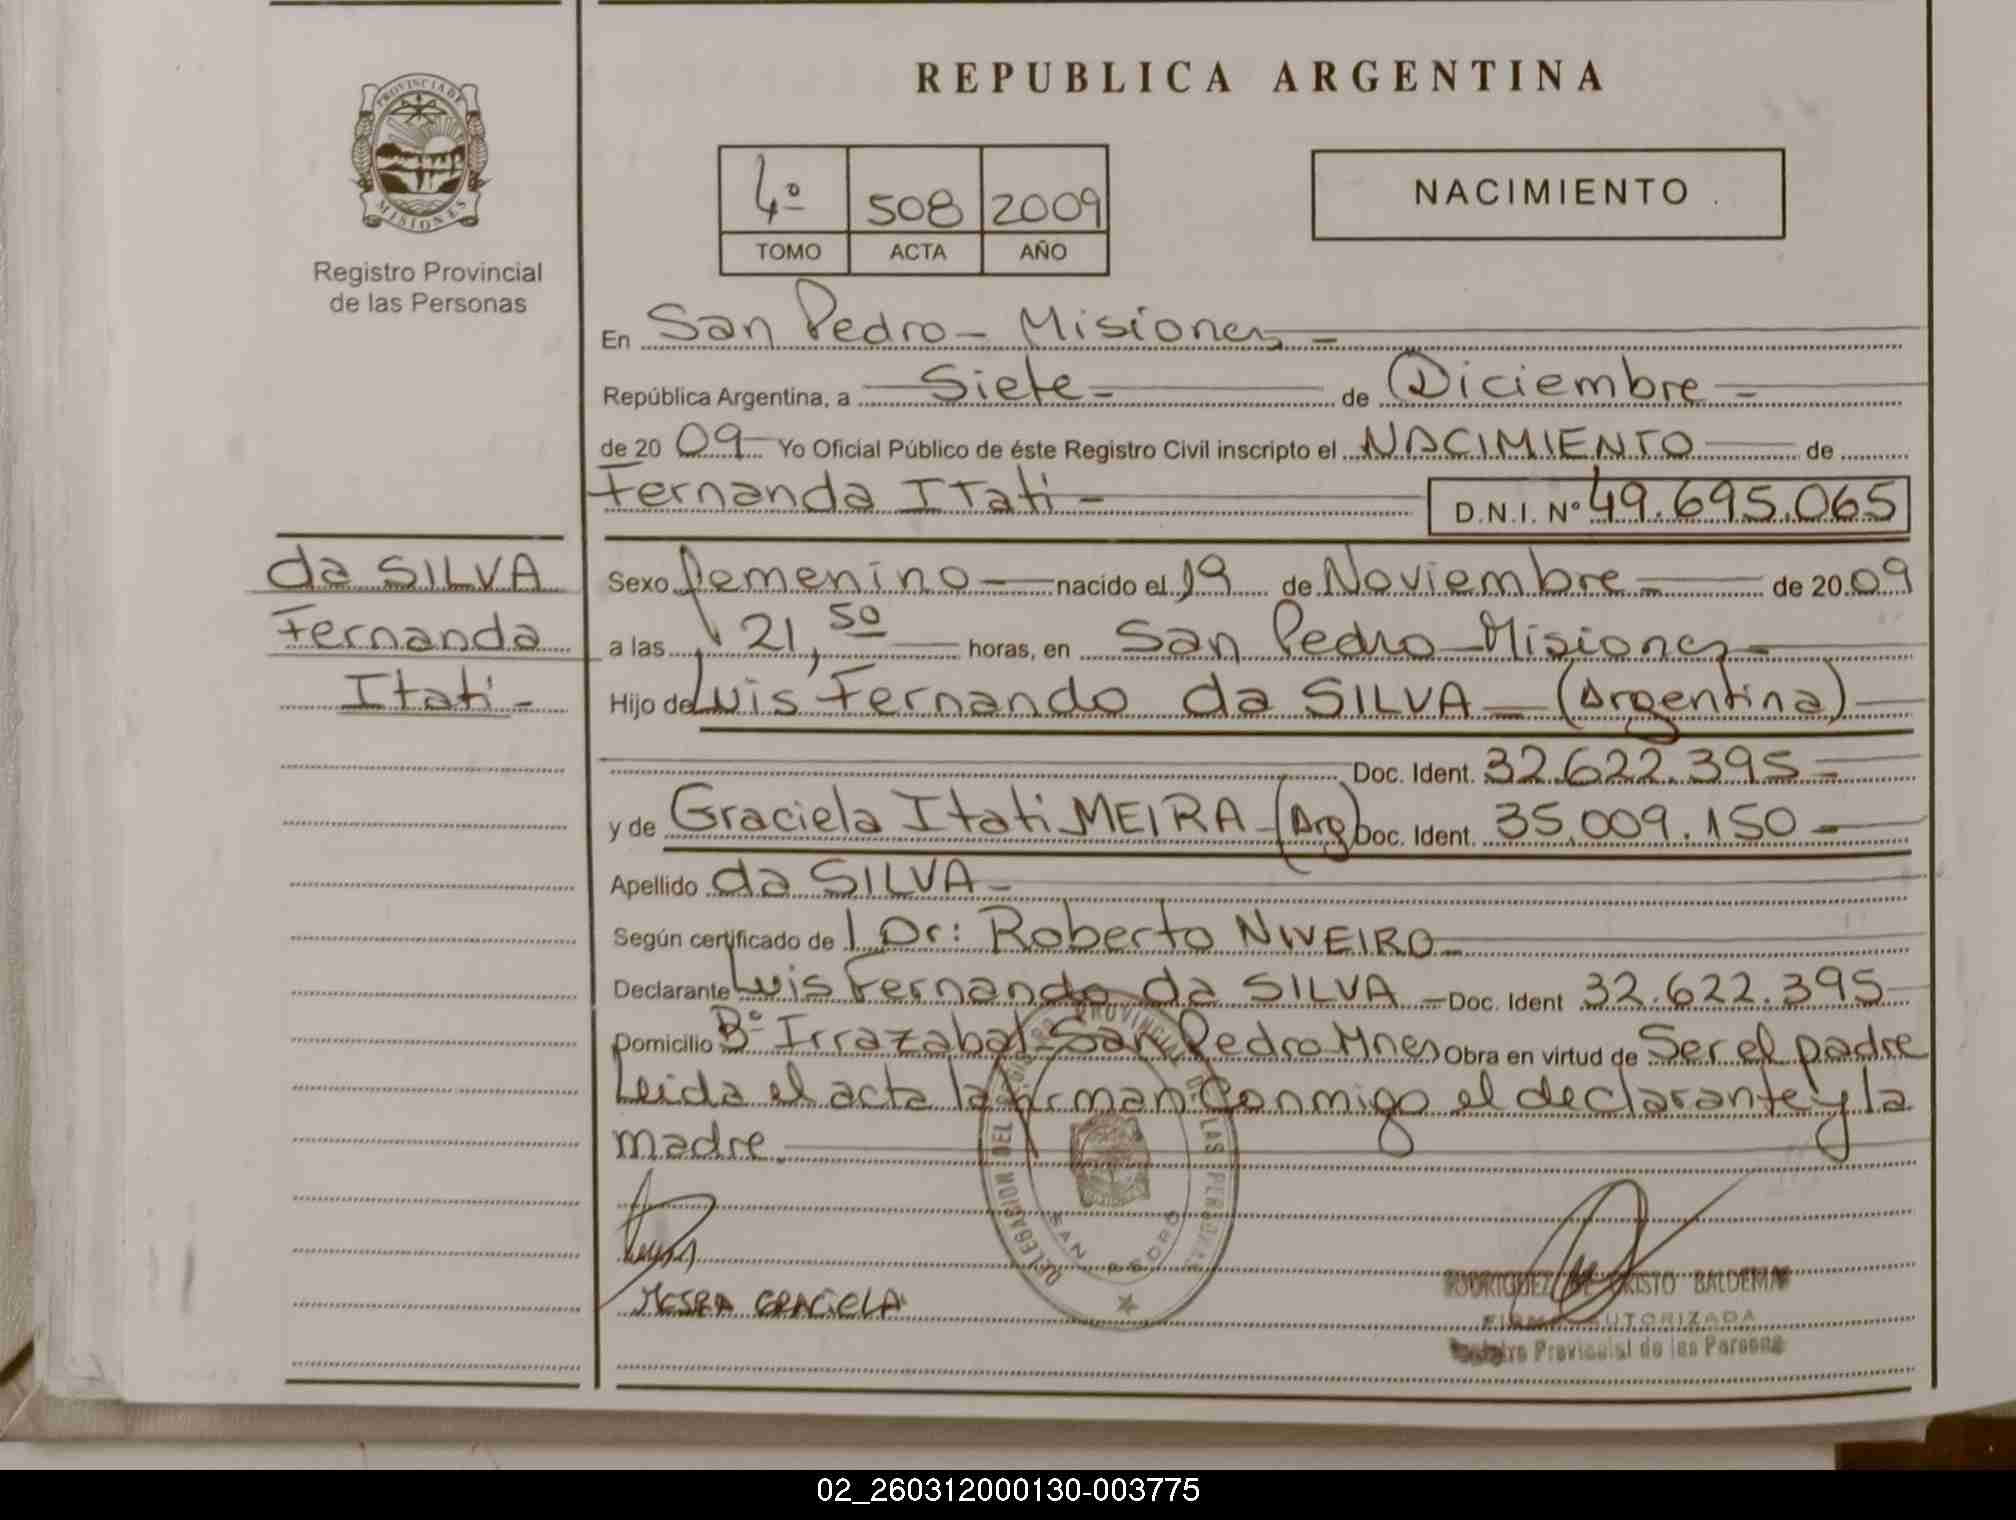 REPUBLICA ARGENTINA
PROVINCIA DE
MISIONES
Registro Provincial
de las Personas
4º 508 2009
TOMO ACTA AÑO
NACIMIENTO
En San Pedro - Misiones -
República Argentina, a Siete - de Diciembre -
de 20 09 Yo Oficial Público de éste Registro Civil inscripto el NACIMIENTO de
Fernanda Itati - D.N.I. Nº 49.695.065
da SILVA
Fernanda
Itati -
Sexo femenino nacido el 19 de Noviembre - de 20 09
a las 21,50 horas, en San Pedro - Misiones -
Hijo de Luis Fernando da SILVA - (Argentina)
Doc. Ident. 32.622.395 -
y de Graciela Itati MEIRA - (Arg) Doc. Ident. 35.009.150 -
Apellido da SILVA -
Según certificado de l Dr: Roberto NIVEIRO -
Declarante Luis Fernando da SILVA - Doc. Ident 32.622.395
Domicilio Bº Irrazabal - San Pedro Mnes Obra en virtud de Ser el padre
Leida el acta la firman conmigo el declarante y la
madre.
DELEGACION DEL REGISTRO PROVINCIAL DE LAS PERSONAS
SAN PEDRO
GRACIELA
RODRIGUEZ DE CRISTO BALDEMAR
FIRMA AUTORIZADA
Registro Provincial de las Personas
02_260312000130-003775